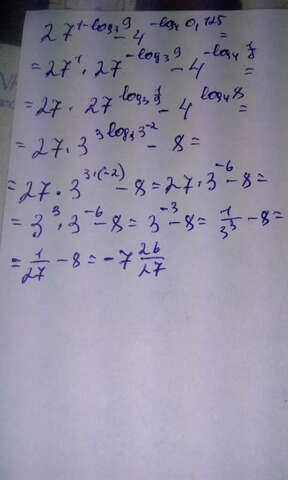 27^{1-log₃9} - 4^{-log₄0,125} =
= 27¹ · 27^{-log₃9} - 4^{-log₄ 1/8} =
= 27 · 27^{log₃ 1/9} - 4^{log₄8} =
= 27 · 3^{3log₃3⁻²} - 8 =
= 27 · 3^{3·(-2)} - 8 = 27 · 3⁻⁶ - 8 =
= 3³ · 3⁻⁶ - 8 = 3⁻³ - 8 = 1/3³ - 8 =
= 1/27 - 8 = -7 26/27